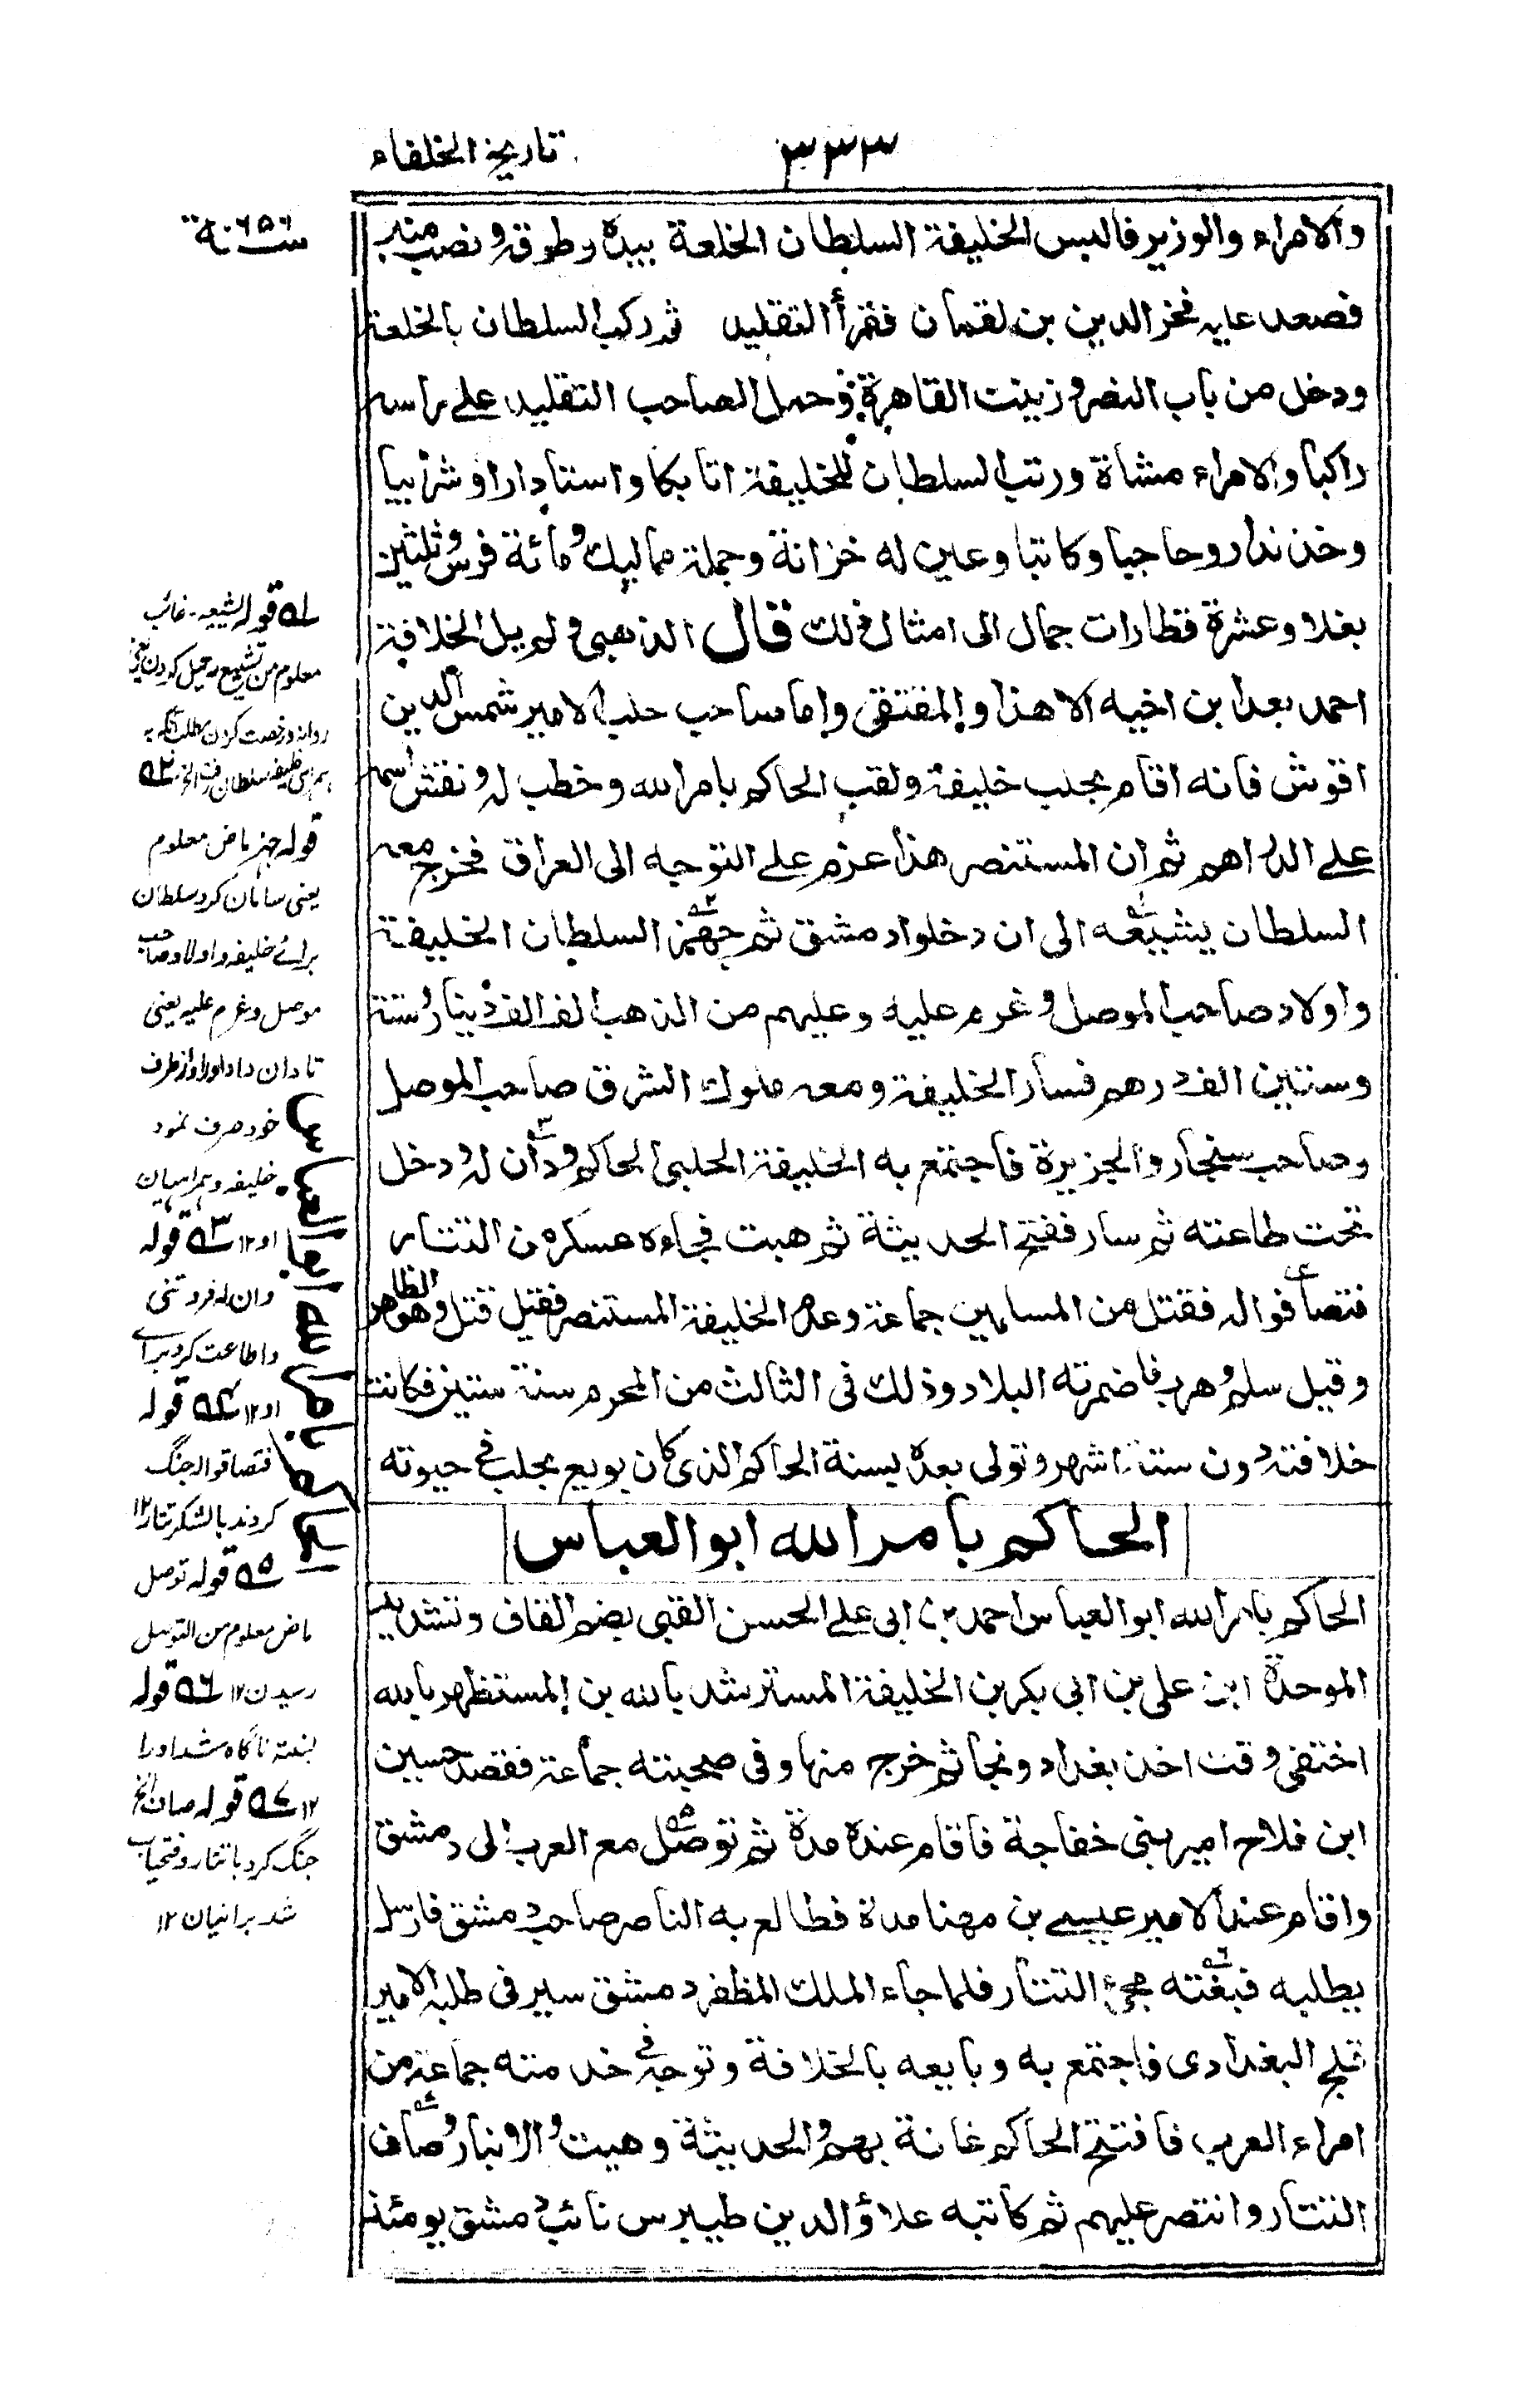 ٣٣٣
تاريخ الخلفاء
سنة ٦٥٦
والامراء والوزير فالبس الخليفة السلطان الخلعة بيده وطوقه ونصب منبر
فصعد عليه فخر الدين بن لقمان فقرأ التقليد ثم ركب السلطان بالخلعة
ودخل من باب النصر وزينت القاهرة وحمل الصاحب التقليد على راسه
راكبا والامراء مشاة ورتب السلطان للخليفة اتابكا واستادارا وشرابيا
وخزندار وحاجبا وكاتبا وعين له خزانة وجملة مماليك ومائة فرس وثلثين
بغلا وعشرة قطارات جمال الى امثال ذلك قال الذهبى ولم يل الخلافة
احمد بعد ابن اخيه الا هذا والمقتفى واما صاحب حلب الامير شمس الدين
اقوش فانه اقام بحلب خليفة ولقب الحاكم بامر الله وخطب له ونقش اسمه
على الدراهم ثم ان المستنصر هذا عزم على التوجه الى العراق فخرج معه
السلطان يشيعه الى ان دخلوا دمشق ثم جهز السلطان الخليفة
واولاد صاحب الموصل وغرم عليه وعليهم من الذهب الف الف دينار وستة
وستين الف درهم فسار الخليفة ومعه ملوك الشرق صاحب الموصل
وصاحب سنجار والجزيرة فاجتمع به الخليفة الحلبى الحاكم ودان له ودخل
تحت طاعته ثم سار ففتح الحديثة ثم هيت فجاءه عسكر من التتار
فتصافوا له فقتل من المسلمين جماعة وعدم الخليفة المستنصر فقيل قتل وهو الظاهر
وقيل سلم وهرب فاضمرته البلاد وذلك فى الثالث من المحرم سنة ستين فكانت
خلافته دون ستة اشهر وتولى بعده بسنة الحاكم الذى كان بويع بحلب فى حيوته
الحاكم بامر الله ابو العباس
الحاكم بامر الله ابو العباس احمد بن ابى على الحسن القبى بضم القاف وتشديد
الموحدة ابن على بن ابى بكر بن الخليفة المسترشد بالله بن المستظهر بالله
اختفى وقت اخذ بغداد ونجا ثم خرج منها وفى صحبته جماعة فقصد حسين
ابن فلاح امير بنى خفاجة فاقام عنده مدة ثم توصل مع العرب الى دمشق
واقام عند الامير عيسى بن مهنا مدة فطالع به الناصر صاحب دمشق فارسل
يطلبه فبغته مجئ التتار فلما جاء الملك المظفر دمشق سير فى طلبه الامير
قلج البغدادى فاجتمع به وبايعه بالخلافة وتوجه فى خدمته جماعة من
امراء العرب فافتتح الحاكم غانة بهم والحديثة وهيت والانبار وصاف
التتار وانتصر عليهم ثم كاتبه علاؤ الدين طيبرس نائب دمشق يومئذ
۱ قوله يشيعه - غائب
معلوم من تشييع
روانه و رخصت كردن
۲
قوله جهز ماض معلوم
يعنى سامان كرد سلطان
براے خليفه و اولاد صاحب
موصل وغرم عليه يعنى
تاوان داد اورا و از طرف
خود صرف نمود
خليفه و همراهيان
او ١٢ ۳ قوله
دان له فروتنى
واطاعت كرد براے
او ١٢ ۴ قوله
فتصافوا له جنگ
كردند با لشكر تتار ١٢
۵ قوله توصل
ماض معلوم من التوصل
رسيدن ١٢ ۶ قوله
بغته ناگاه شد اورا
١٢ ۷ قوله صاف الخ
جنگ كرد با تتار و فتحياب
شد بر ايشان ١٢
الحاكم بامر الله ابو العباس